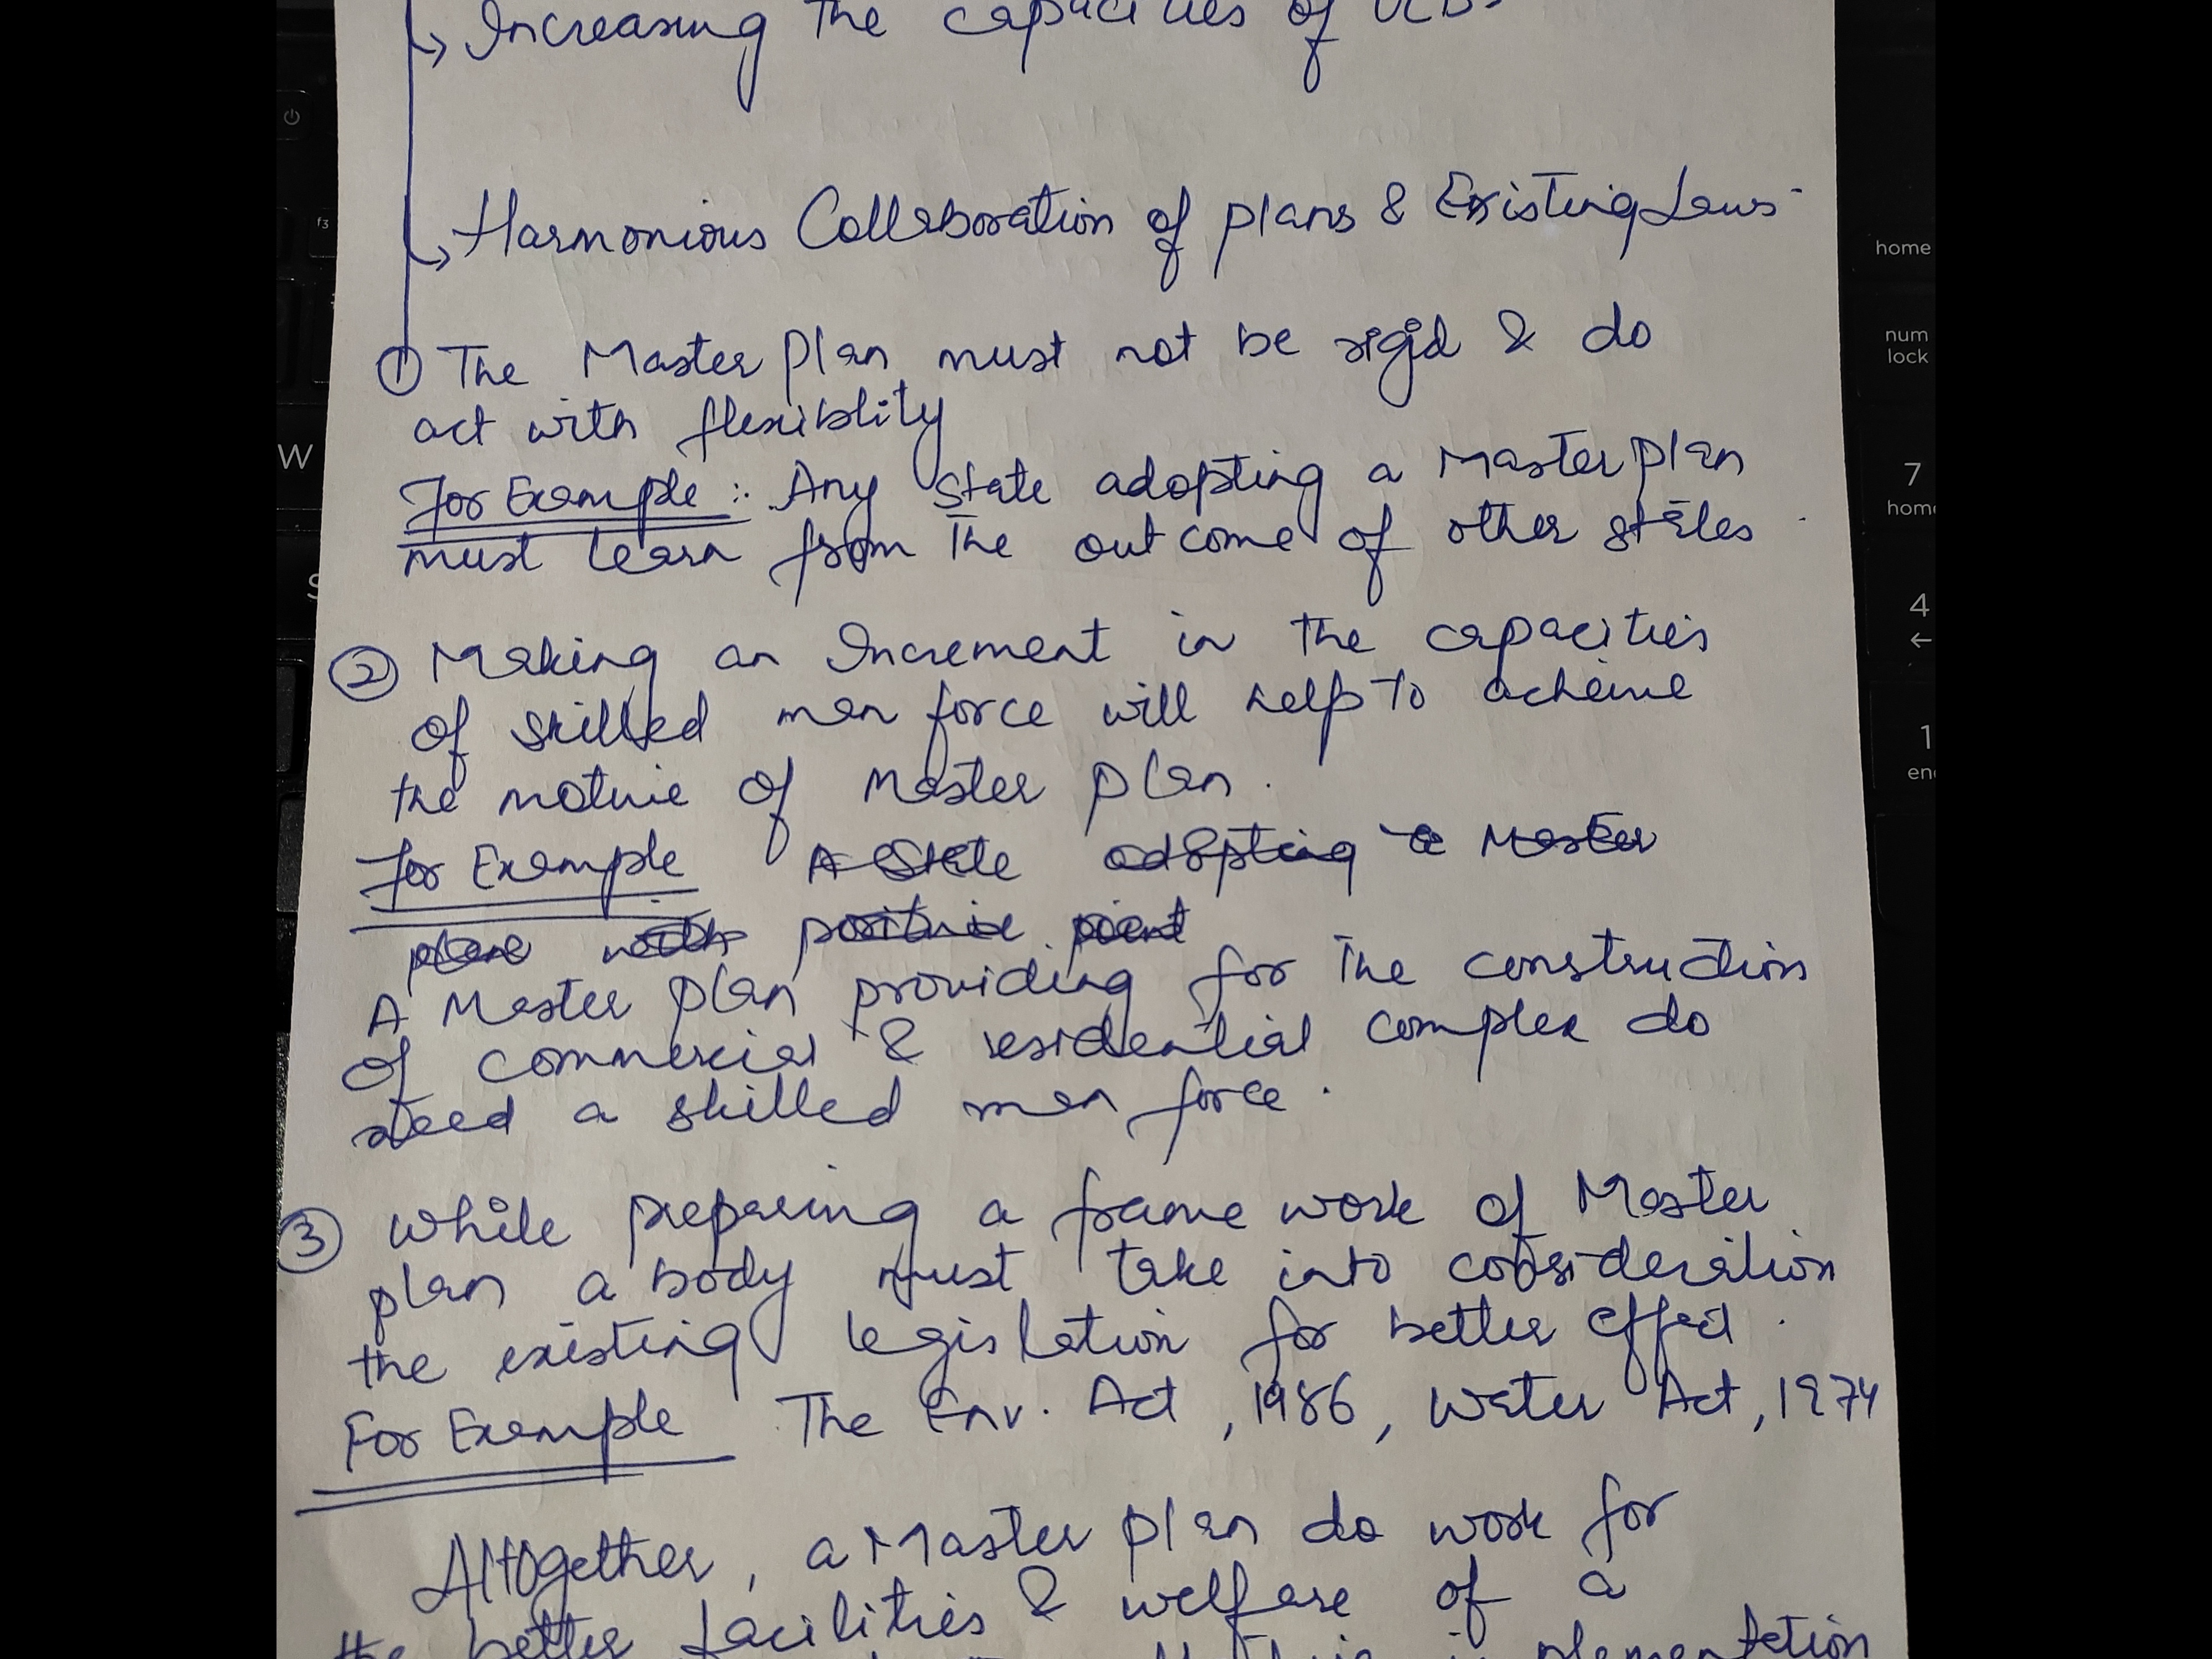 Increasing the capacities of ULBs
Harmonious Collaboration of plans & Existing Laws
① The Master Plan must not be rigid & do
act with flexiblity
For Example :- Any State adopting a Master plan
must learn from the outcome of other states
② Making an Increment in the capacities
of skilled man force will help to acheive
the motive of master plan.
For Example A State adopting a Master
plan with positive point
A Master plan providing for the construction
of commercial & residential complex do
need a skilled man force.
③ While preparing a frame work of Master
plan a body must take into consideration
the existing legislation for better effect.
For Example The Env. Act, 1986, Water Act, 1974
Altogether, a Master plan do work for
the better facilities & welfare of a
implementation
home
num
lock
7
home
4
←
1
end
f3
W
S